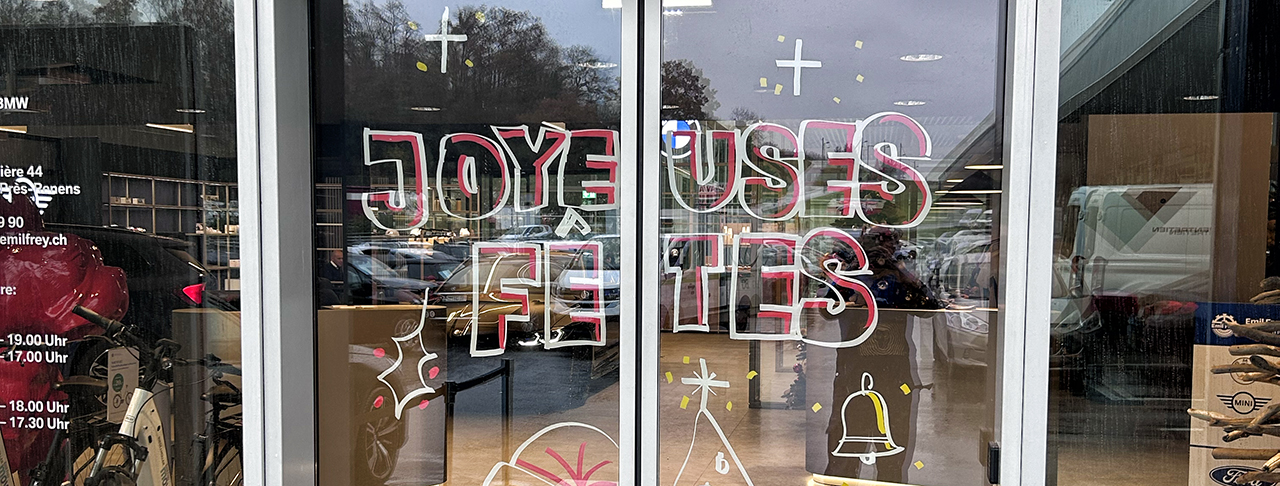 BMW
ière 44
Près-Papens
9 90
emilfrey.ch
re:
– 19.00 Uhr
– 17.00 Uhr
– 18.00 Uhr
– 17.30 Uhr
JOYEUSES
FÊTES
Emil F
MINI
Ford